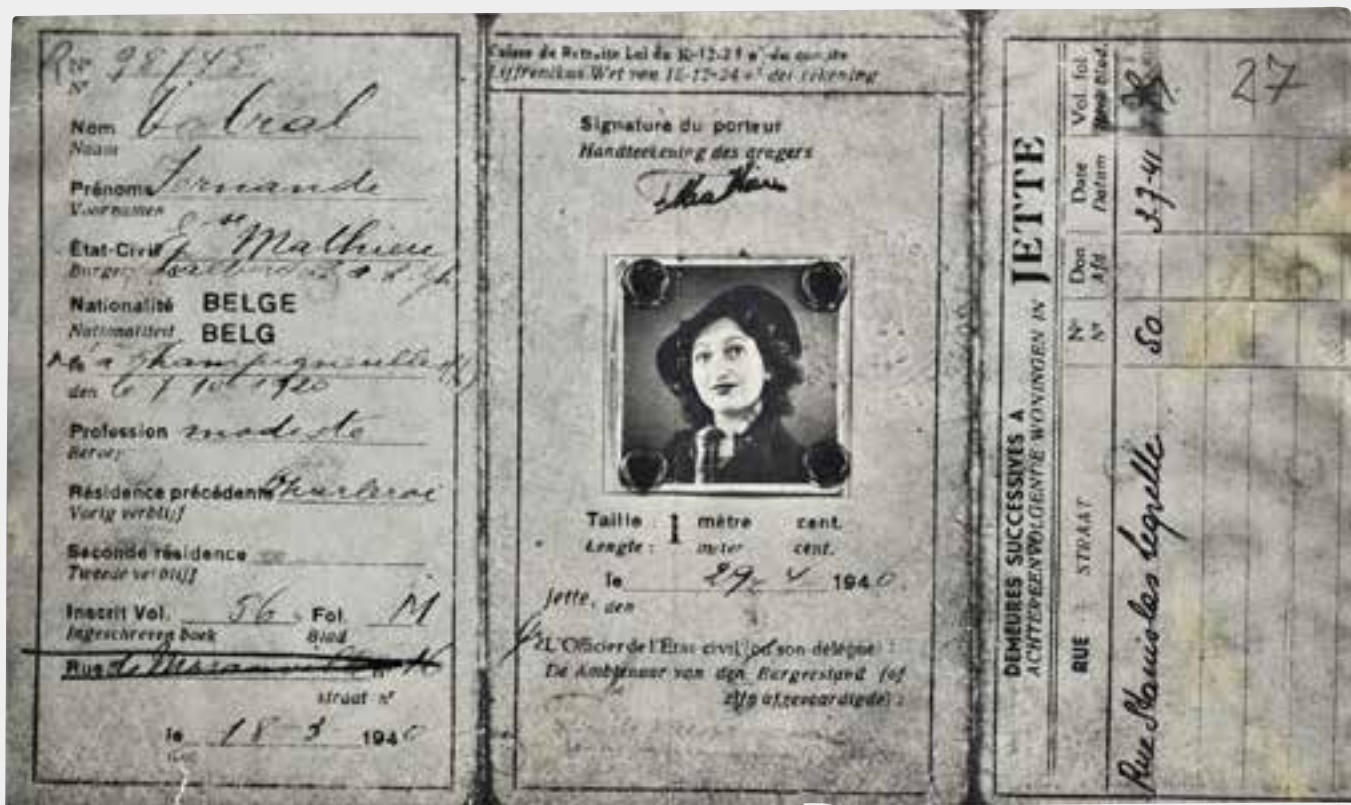 Nº 98/45
Nº
Nom
Naam
Prénoms Fernande
Voornamen
État-Civil Ese Mathieu
Burger.
Nationalité BELGE
Nationaliteit BELG
né à Champigneulles
den le 7 10 1920
Profession modiste
Beroep
Résidence précédente Charleroi
Vorig verblijf
Seconde résidence
Tweede verblijf
Inscrit Vol. 56 Fol. M
Ingeschreven boek Blad
Rue de
straat nº
le 18 3 1940
Caisse de Retraite Loi du 10-12-24 nº du compte
Lijfrentkas Wet van 10-12-24 nº der rekening
Signature du porteur
Handteekening des dragers
Taille : 1 mètre cent.
Lengte : meter cent.
Jette, le 29 4 1940.
den
L'Officier de l'État civil (ou son délégué) :
De Ambtenaar van den Burgerstand (of
zijn afgevaardigde) :
DEMEURES SUCCESSIVES A JETTE
ACHTEREENVOLGENTE WONINGEN IN
RUE STRAAT Nº Nº Don Afd. Date Datum Vol. fol. Boek Blad.
Rue Stanislas Legrelle 50 3-7-41
27